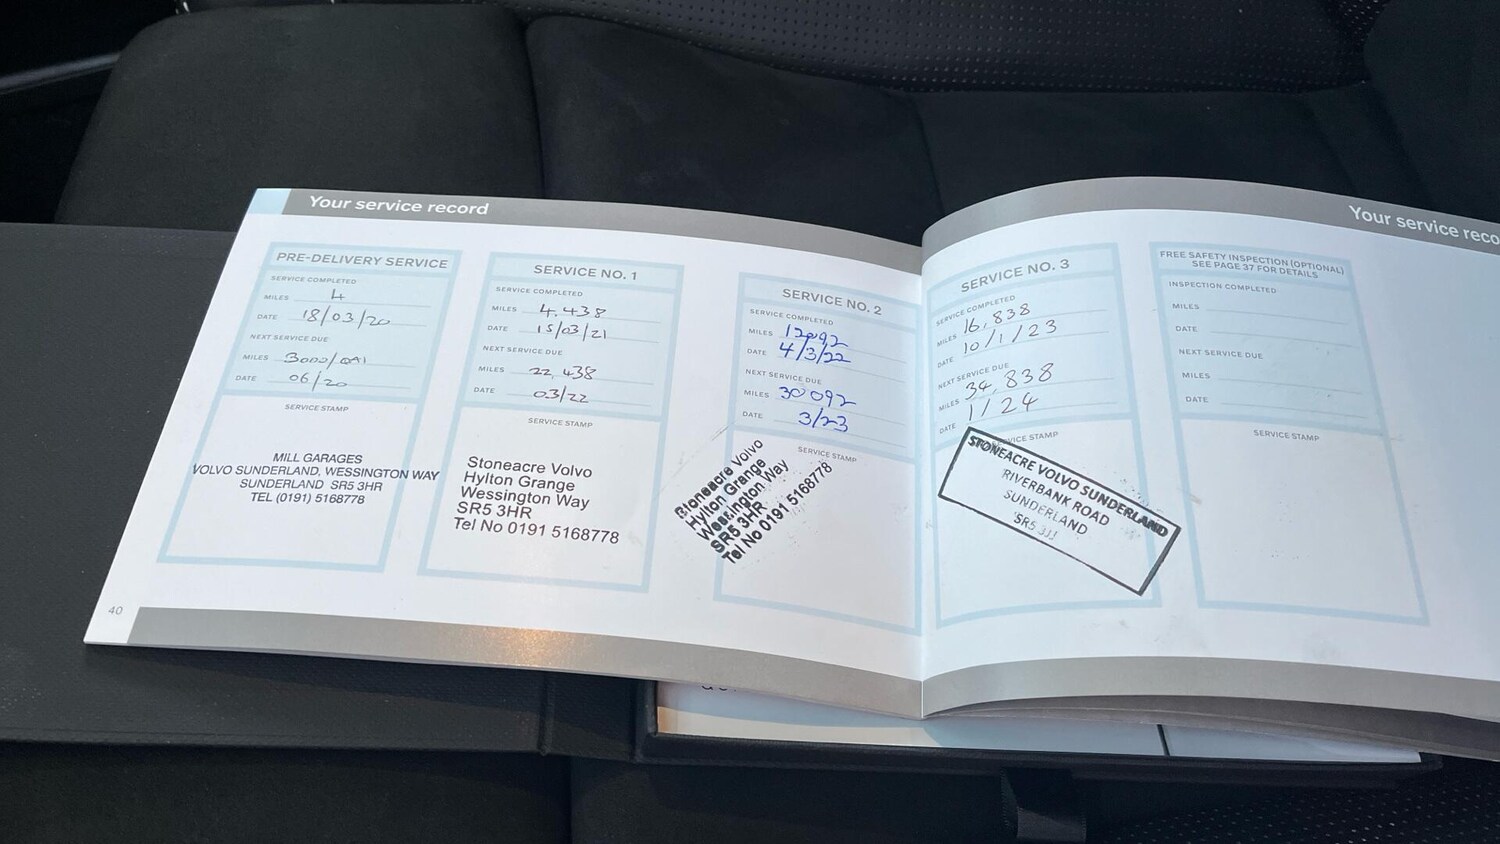 Your service record
PRE-DELIVERY SERVICE
SERVICE COMPLETED
MILES 4
DATE 18/03/20
NEXT SERVICE DUE
MILES 3000/
DATE 06/20
SERVICE STAMP
MILL GARAGES
VOLVO SUNDERLAND, WESSINGTON WAY
SUNDERLAND SR5 3HR
TEL (0191) 5168778
SERVICE NO. 1
SERVICE COMPLETED
MILES 4,438
DATE 15/03/21
NEXT SERVICE DUE
MILES 22,438
DATE 03/22
SERVICE STAMP
Stoneacre Volvo
Hylton Grange
Wessington Way
SR5 3HR
Tel No 0191 5168778
SERVICE NO. 2
SERVICE COMPLETED
MILES 12092
DATE 4/3/22
NEXT SERVICE DUE
MILES 30092
DATE 3/23
SERVICE STAMP
Stoneacre Volvo
Hylton Grange
Wessington Way
SR5 3HR
Tel No 0191 5168778
40
Your service reco
SERVICE NO. 3
SERVICE COMPLETED
MILES 16,838
DATE 10/1/23
NEXT SERVICE DUE
MILES 34,838
DATE 1/24
SERVICE STAMP
STONEACRE VOLVO SUNDERLAND
RIVERBANK ROAD
SUNDERLAND
SR5
FREE SAFETY INSPECTION (OPTIONAL)
SEE PAGE 37 FOR DETAILS
INSPECTION COMPLETED
MILES
DATE
NEXT SERVICE DUE
MILES
DATE
SERVICE STAMP